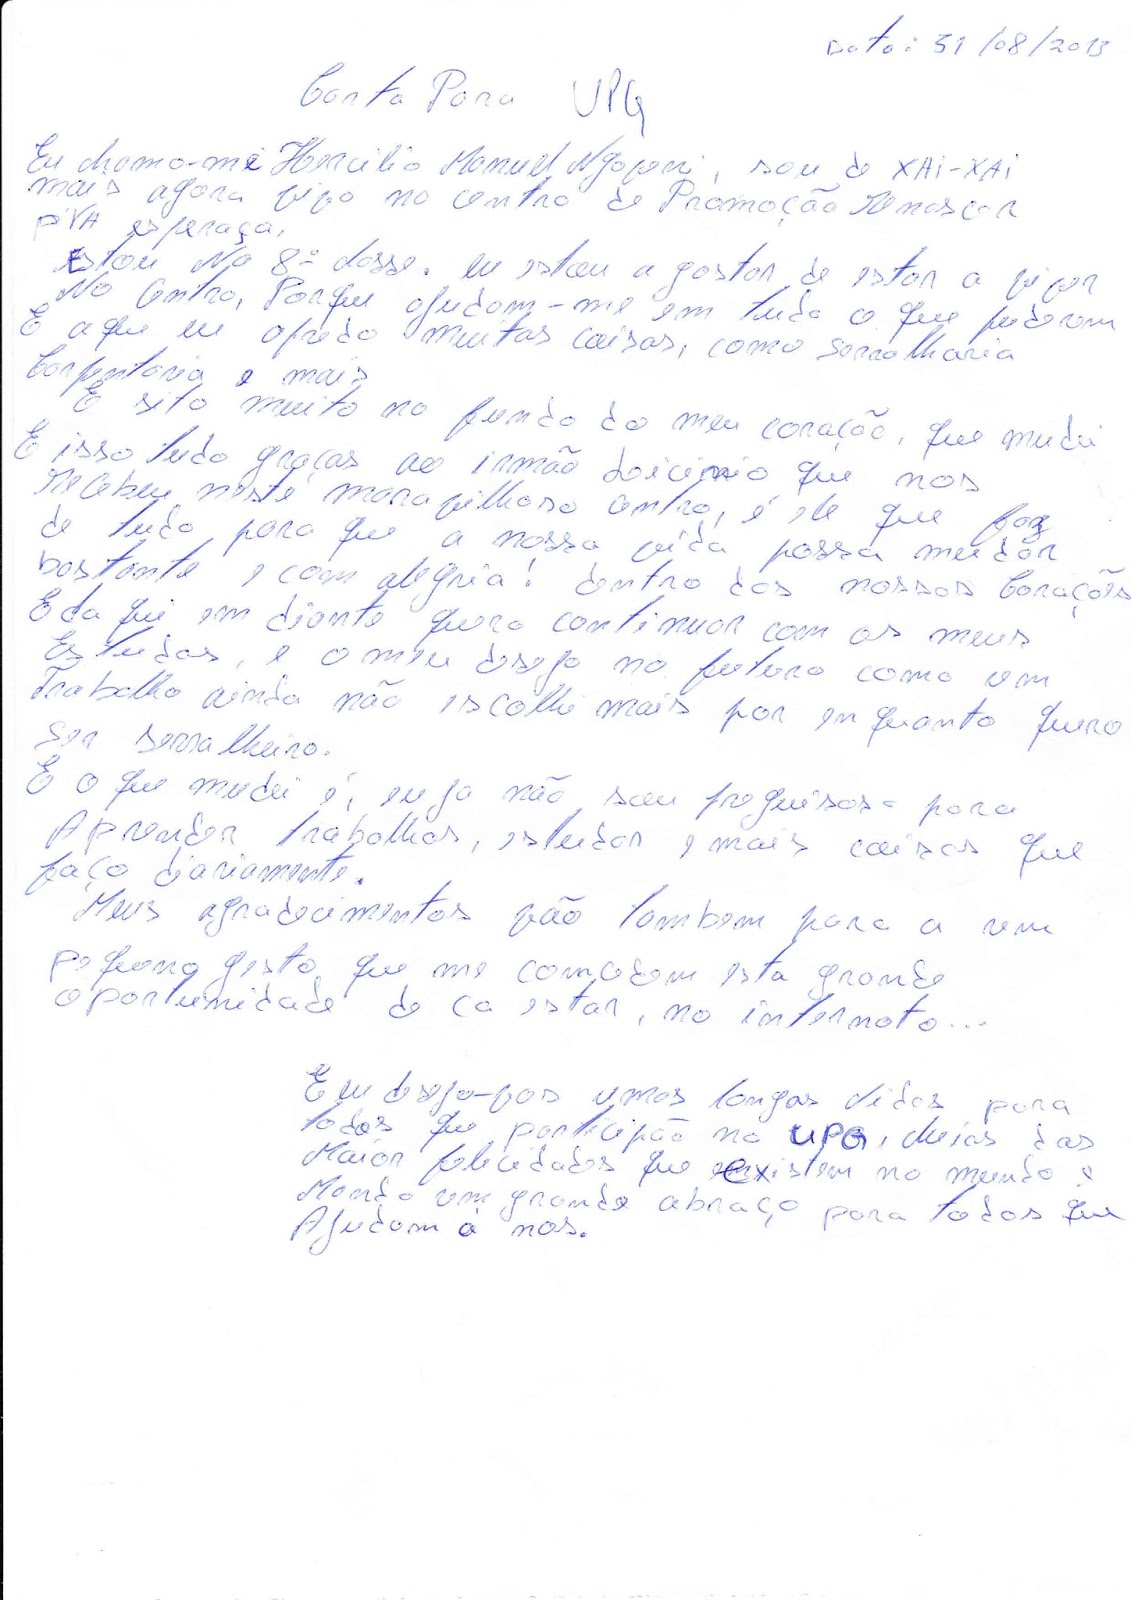 Data: 31/08/2013
Carta Para UPG
Eu chamo-me Hercilio Manuel, sou de XAI-XAI
mais agora vivo no centro de Promoção Renascer
PIVA esperaça.
Estou No 8ª classe. eu estou a gostar de estar a viver
No Centro, Porque ajudam-me em tudo o que poderem
E aque eu apredo muitas coisas, como serralharia
Carpentaria e mais
E sito muito no fundo do meu coração, que mudei
E isso tudo graças ao irmão que nos
recebeu neste maravilhoso centro, é ele que faz
de tudo para que a nossa vida possa mudar
bastante e com alegria! dentro dos nossos Corações
E da qui em diante quero continuar com os meus
Estudos, e o meu desejo no futuro como um
Trabalho ainda não escolhi mais por enquanto quero
ser serralheiro.
E o que mudei é, eu ja não sou preguisoso para
Aprender trabalhos, estudar e mais coisas que
faço diariamente.
Meus agradecimentos vão tambem para a um
pequeno gesto que me comcedem esta grande
oportunidade de ca estar, no internato...
E eu desejo-vos umas longas vidas para
todos que participão na UPG, cheias das
Maior felicidades que existem no mundo e
Mando um grande abraço para todos que
Ajudam a nos.